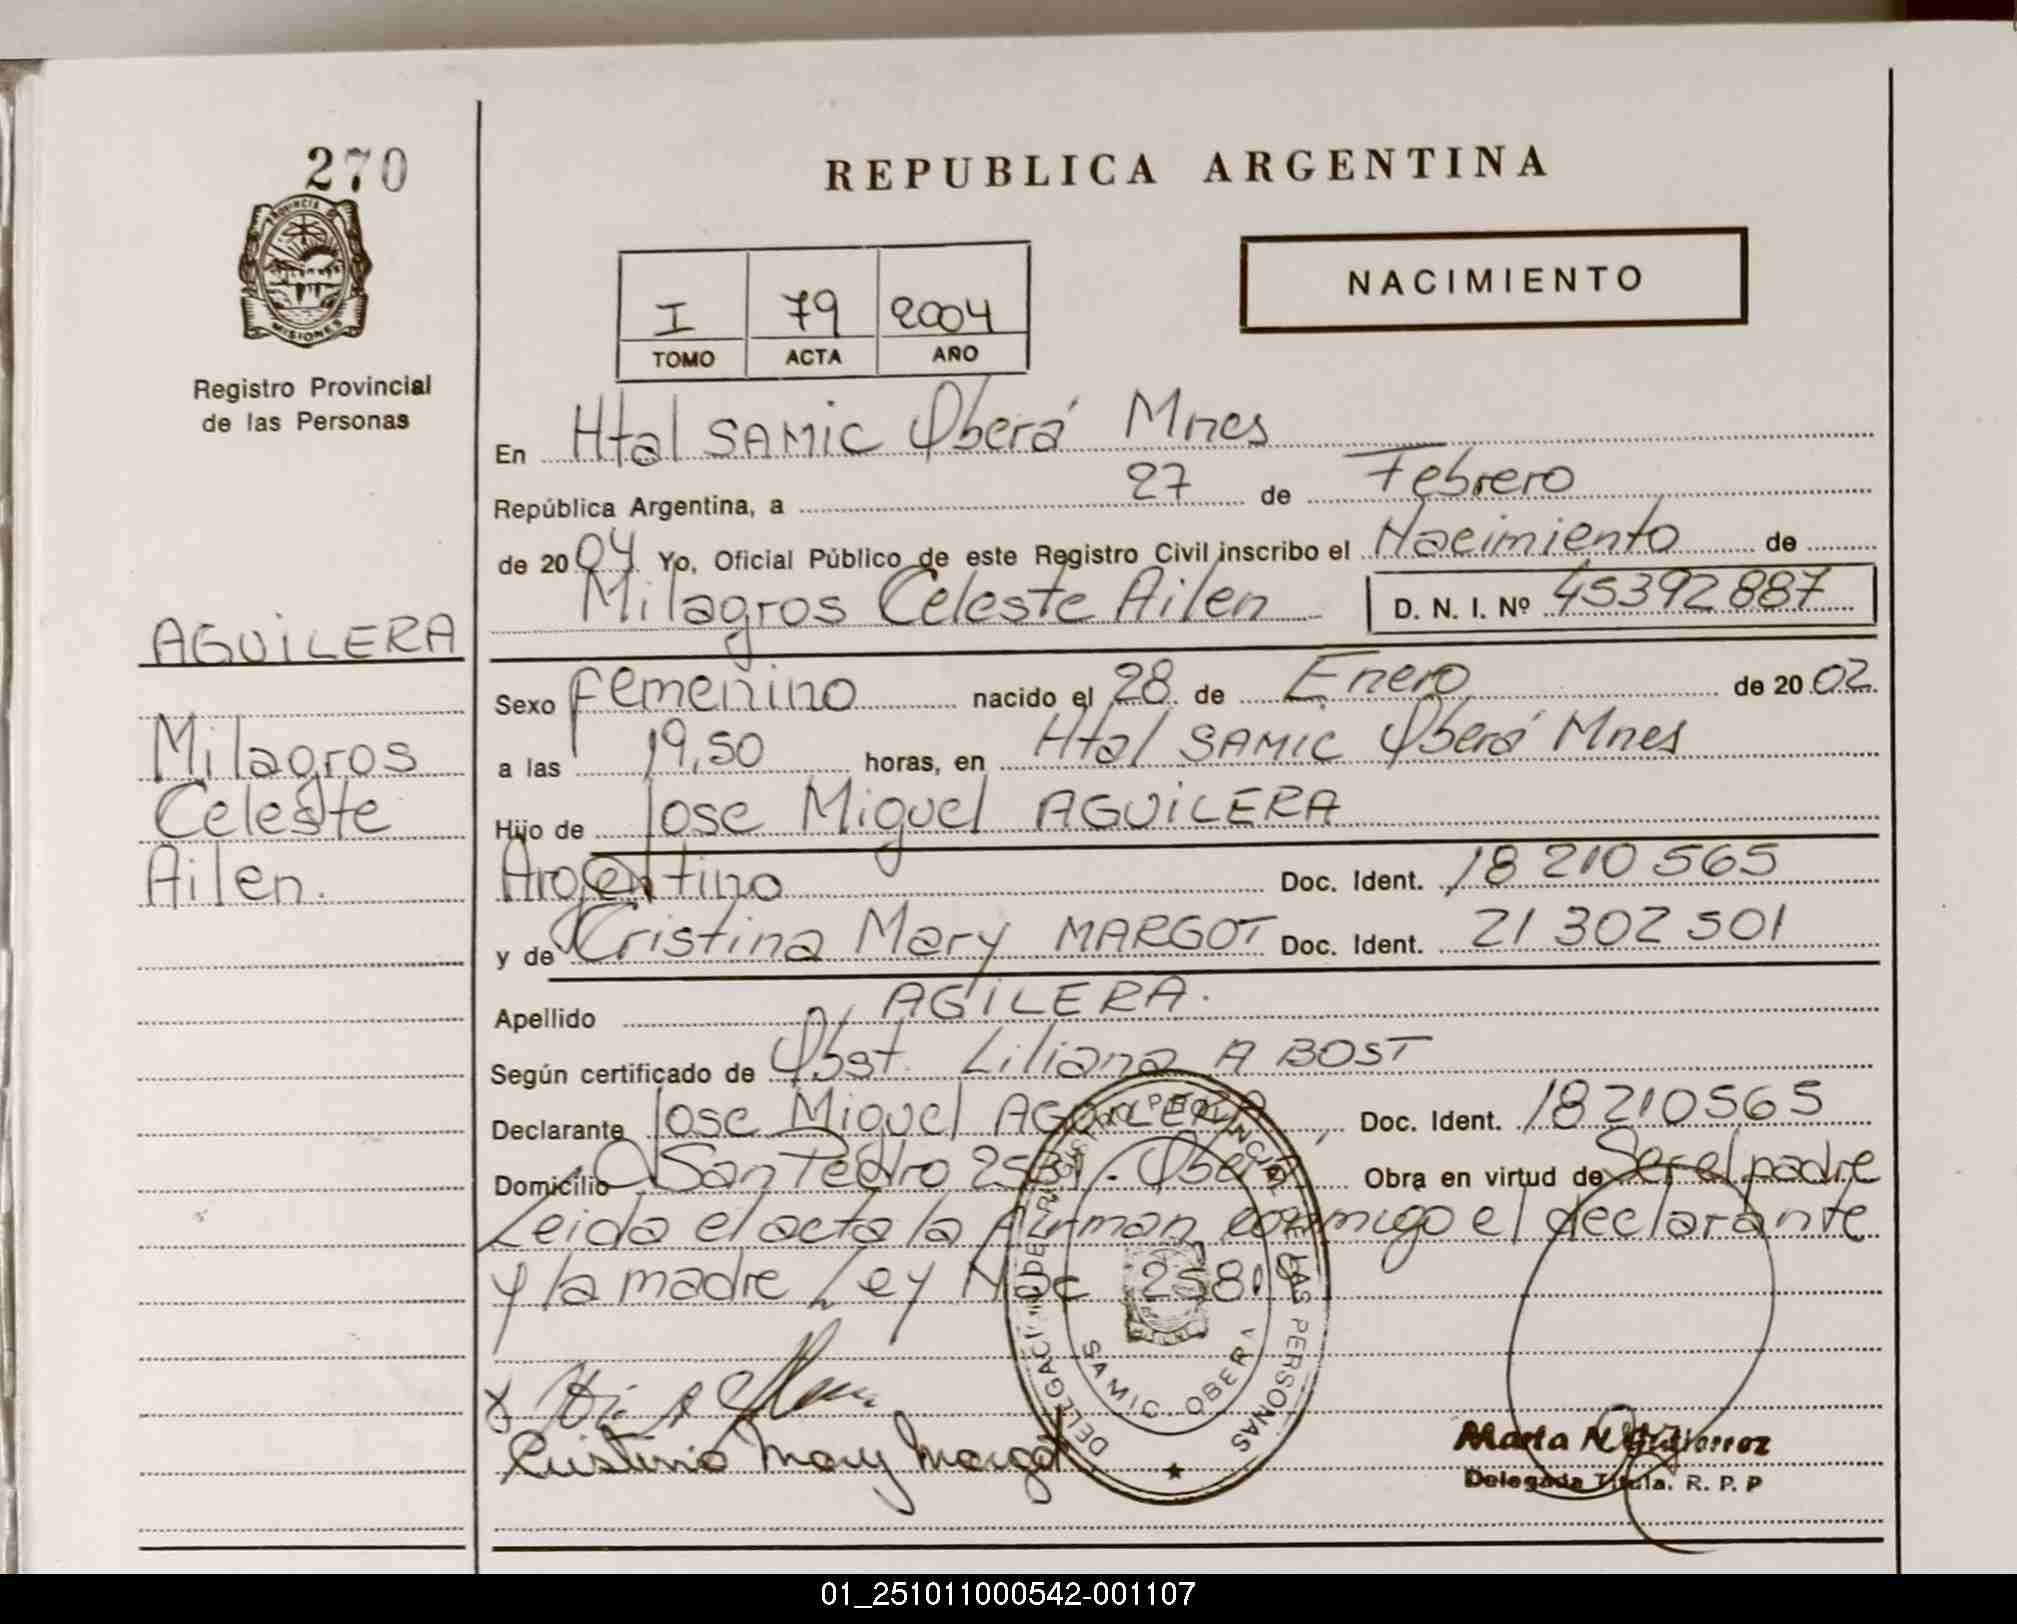 270
PROVINCIA DE
MISIONES
Registro Provincial
de las Personas
REPUBLICA ARGENTINA
NACIMIENTO
I 79 2004
TOMO ACTA AÑO
En Htal SAMIC Oberá Mnes
República Argentina, a 27 de Febrero
de 2004 Yo, Oficial Público de este Registro Civil inscribo el Nacimiento de
Milagros Celeste Ailen D. N. I. Nº 45392887
AGUILERA
Milagros
Celeste
Ailen.
Sexo femenino nacido el 28 de Enero de 2002
a las 19,50 horas, en Htal SAMIC Oberá Mnes
Hijo de Jose Miguel AGUILERA
Argentino Doc. Ident. 18 210 565
y de Cristina Mary MARGOT Doc. Ident. 21 302 501
Apellido AGILERA.
Según certificado de Obst. Liliana A BOST
Declarante Jose Miguel AGUILERA, Doc. Ident. 18210565
Domicilio San Pedro Oberá Obra en virtud de Ser el padre
Leida el acta la firman conmigo el declarante
y la madre Ley Nac
DELEGACION DEL REGISTRO PROVINCIAL DE LAS PERSONAS
SAMIC OBERA
x
Cristina Mary Margot
Marta N. Gutierrez
Delegada Titula. R. P. P
01_251011000542-001107